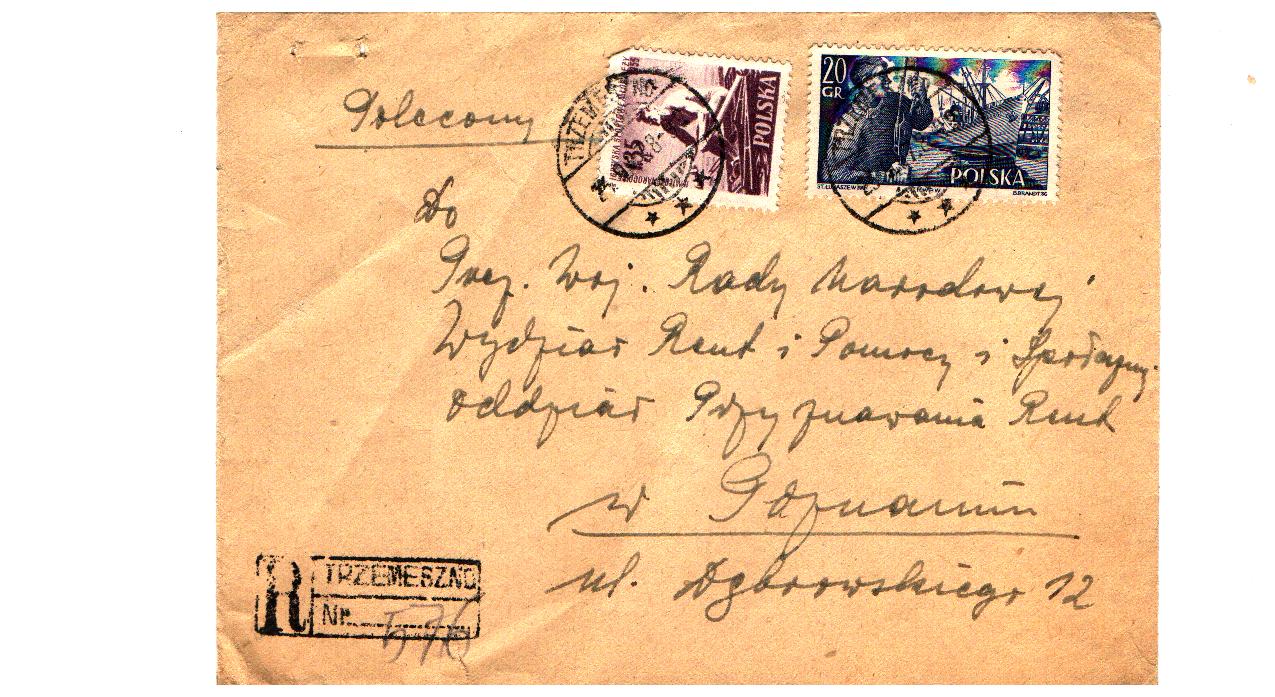 Polecony
POLSKA
20
GR
POLSKA
TRZEMESZNO
Do
Prez. Woj. Rady Narodowej
Wydział Rent i Pomocy i Społeczny
Oddział Przyznawania Rent
w Poznaniu
ul. Dąbrowskiego 12
R TRZEMESZNO
Nr. 576